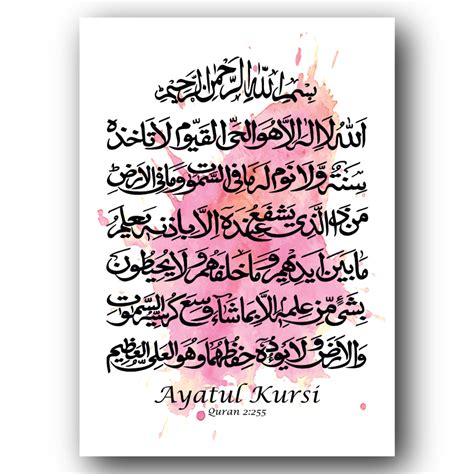 بِسْمِ اللهِ الرَّحْمٰنِ الرَّحِيْمِ
اَللهُ لَا اِلٰهَ اِلَّا هُوَ الْحَيُّ الْقَيُّوْمُ لَا تَاْخُذُهٗ
سِنَةٌ وَّلَا نَوْمٌ لَهٗ مَا فِي السَّمٰوٰتِ وَمَا فِي الْاَرْضِ
مَنْ ذَا الَّذِيْ يَشْفَعُ عِنْدَهٗ اِلَّا بِاِذْنِهٖ يَعْلَمُ
مَا بَيْنَ اَيْدِيْهِمْ وَمَا خَلْفَهُمْ وَلَا يُحِيْطُوْنَ
بِشَيْءٍ مِّنْ عِلْمِهٖ اِلَّا بِمَا شَآءَ وَسِعَ كُرْسِيُّهُ السَّمٰوٰتِ
وَالْاَرْضَ وَلَا يَئُوْدُهٗ حِفْظُهُمَا وَهُوَ الْعَلِيُّ الْعَظِيْمُ
Ayatul Kursi
Quran 2:255